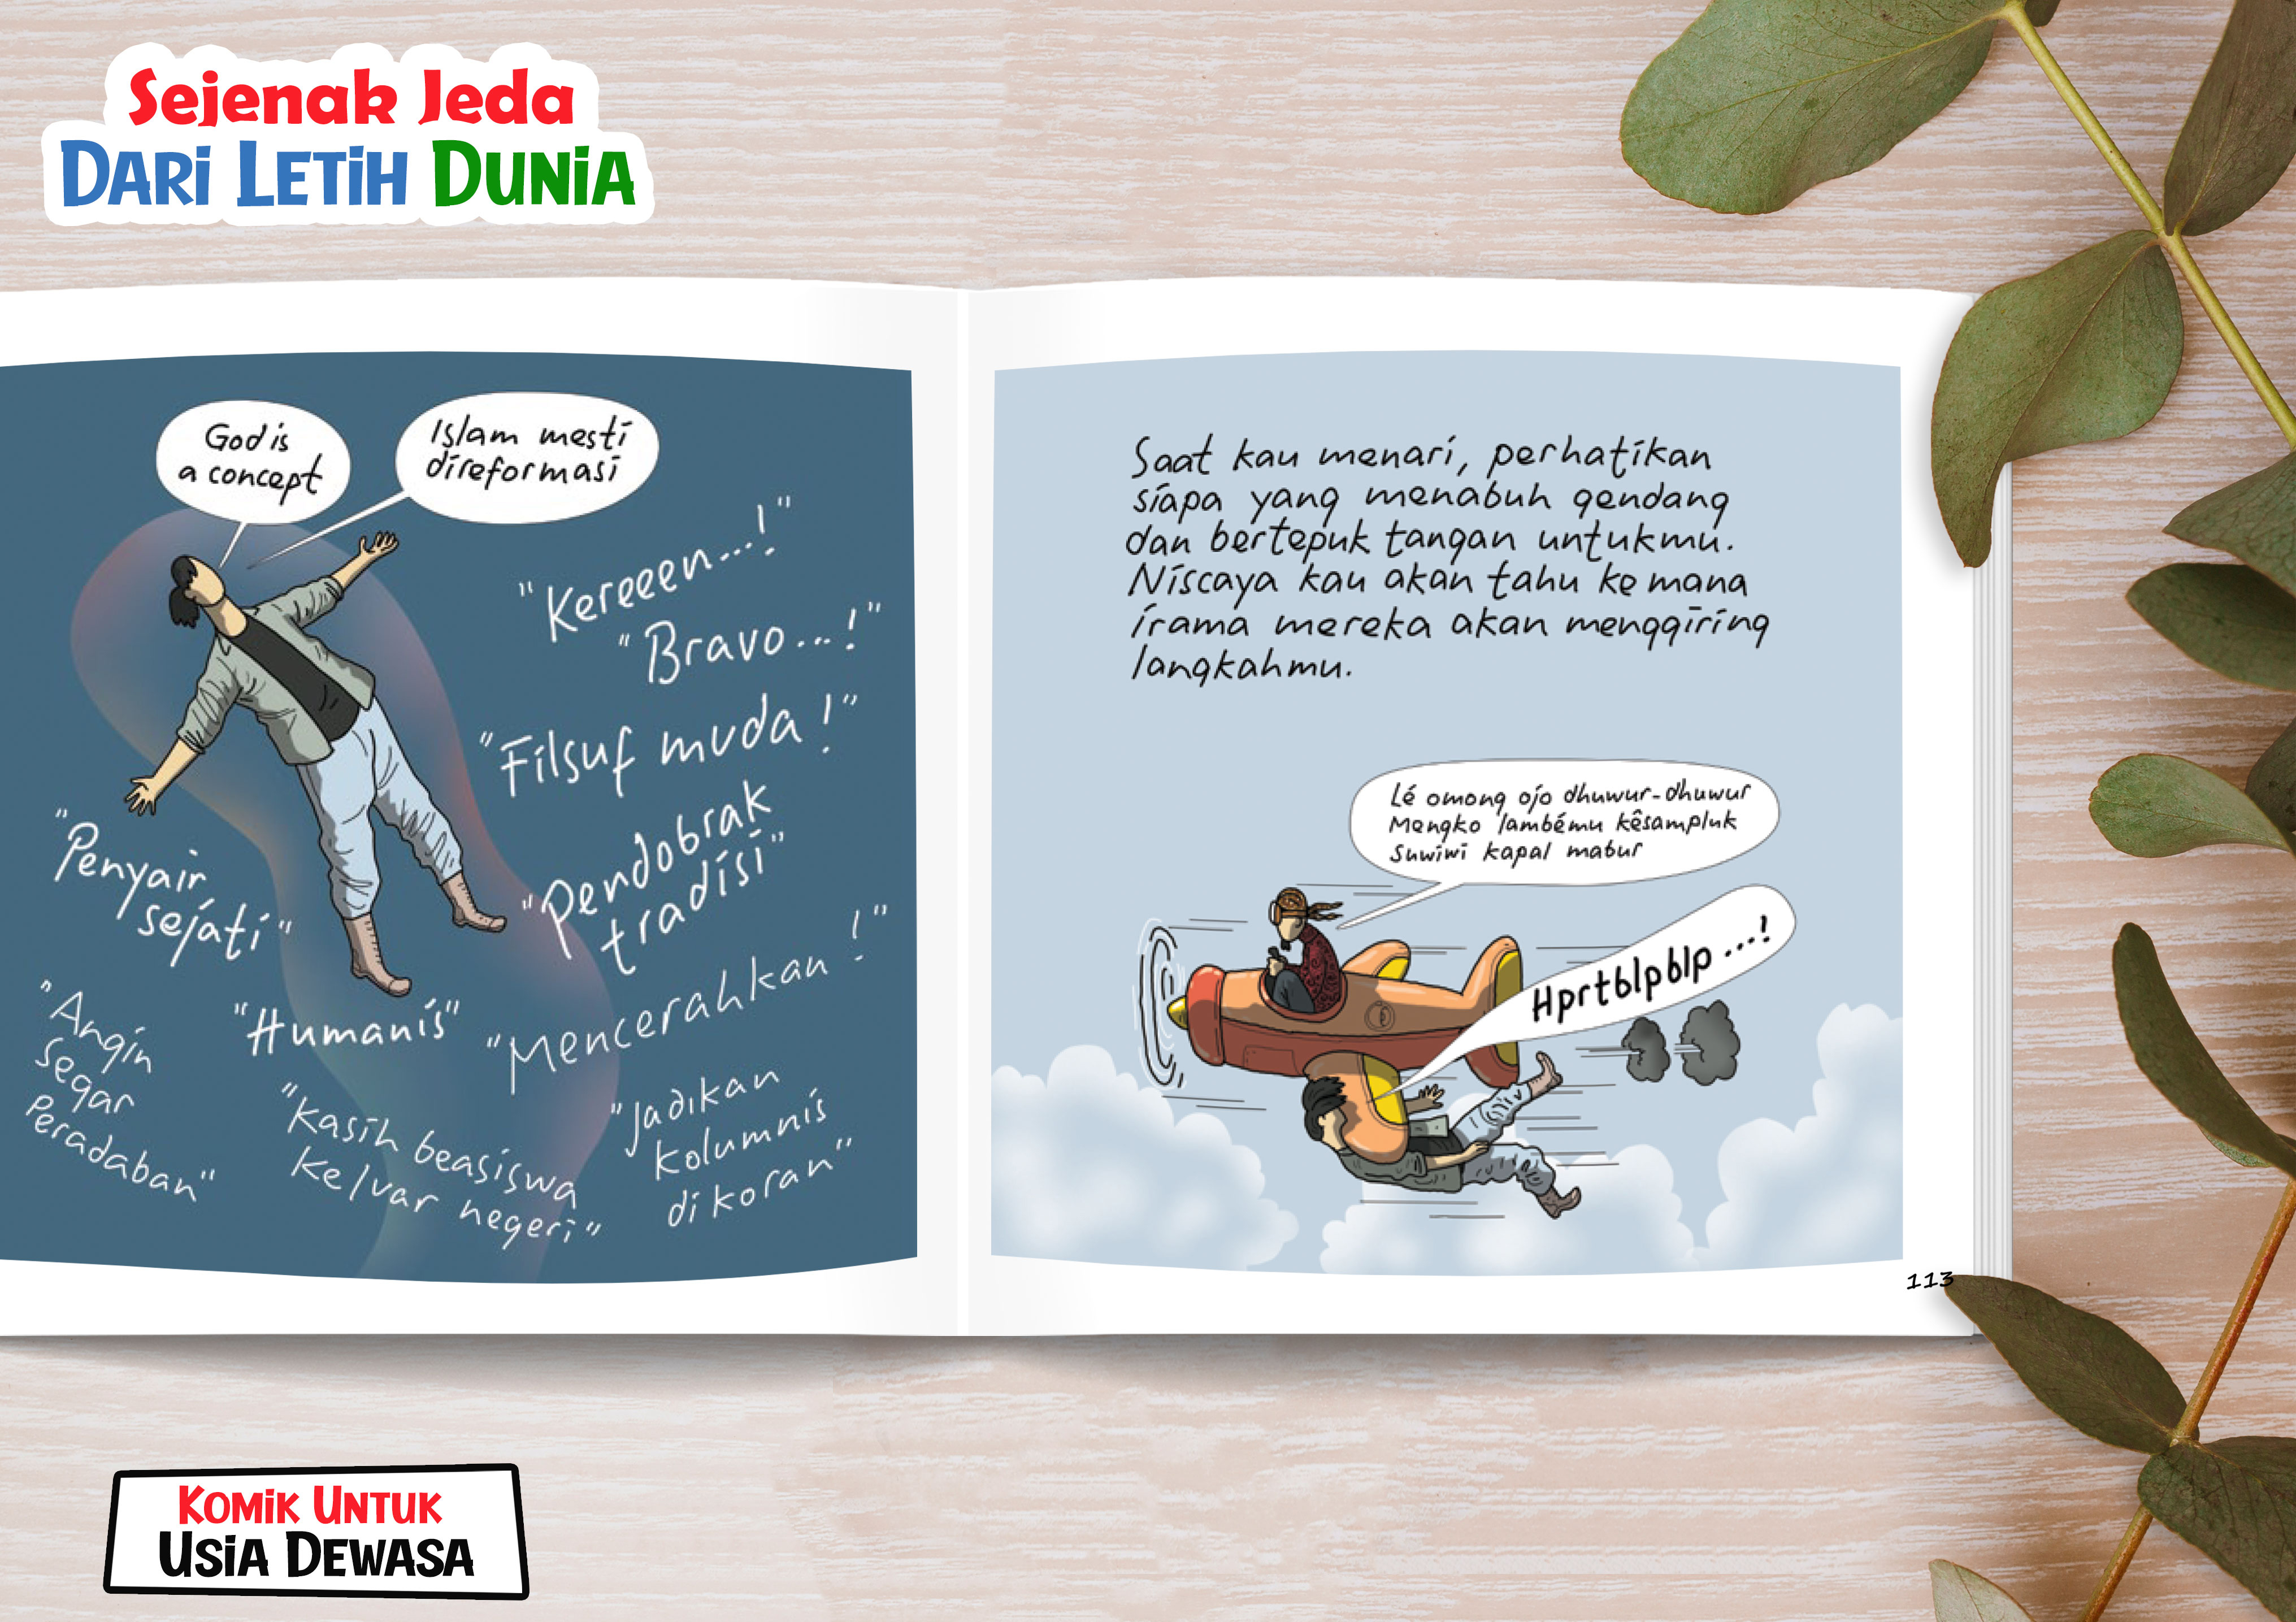 Sejenak Jeda
DARi LETiH DUNiA
God is
a concept
Islam mesti
direformasi
"Kereeen...!"
"Bravo...!"
"Filsuf muda!"
"Pendobrak
tradisi"
"Penyair
sejati"
"Mencerahkan!"
"Humanis"
"Angin
segar
Peradaban"
"Kasih beasiswa
ke luar negeri"
"Jadikan
kolumnis
di koran"
Saat kau menari, perhatikan
siapa yang menabuh gendang
dan bertepuk tangan untukmu.
Niscaya kau akan tahu ke mana
irama mereka akan menggiring
langkahmu.
Lé omong ojo dhuwur-dhuwur
Mengko lambému kêsampluk
Suwiwi kapal mabur
Hprtblpblp...!
113
KOMiK UNTUK
USiA DEWASA